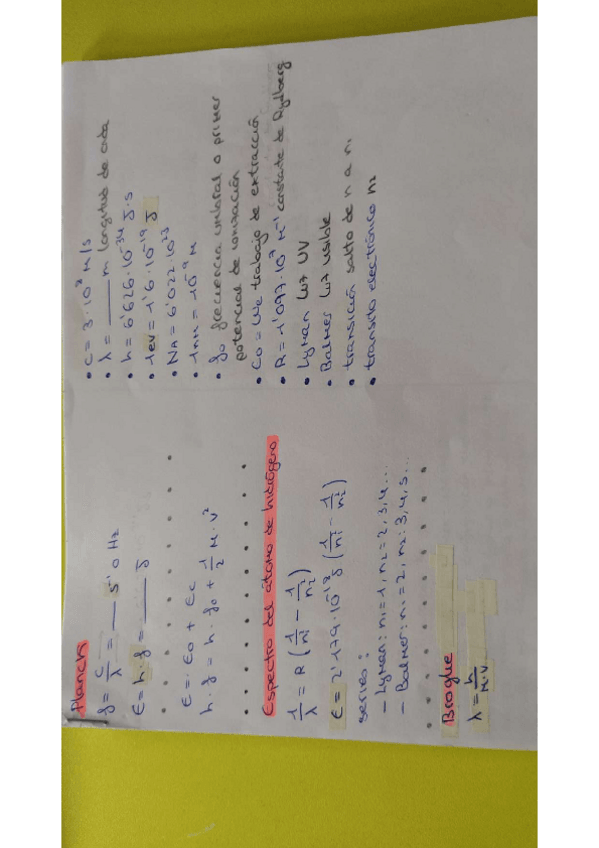 Planck
f = c/λ = ___ s⁻¹ o Hz
E = h·f = ___ J
E = E₀ + Ec
h·f = h·f₀ + 1/2 M·v²
Espectro del átomo de hidrógeno
1/λ = R (1/n₁² − 1/n₂²)
E = 2'179·10⁻¹⁸ J (1/n₁² − 1/n₂²)
series:
– Lyman: n₁ = 1, n₂ = 2, 3, 4...
– Balmer: n₁ = 2, n₂: 3, 4, 5...
Broglie
λ = h/M·v
• C = 3·10⁸ M/s
• λ = ___ m longitud de onda
• h = 6'626·10⁻³⁴ J·s
• 1eV = 1'6·10⁻¹⁹ J
• NA = 6'022·10²³
• 1nM = 10⁻⁹ M
• f₀ frecuencia umbral o primer
potencial de ionización
• E₀ = We trabajo de extracción
• R = 1'097·10⁷ M⁻¹ constante de Rydberg
• Lyman luz UV
• Balmer luz visible
• transición salto de n a n₁
• transito electrónico n₂